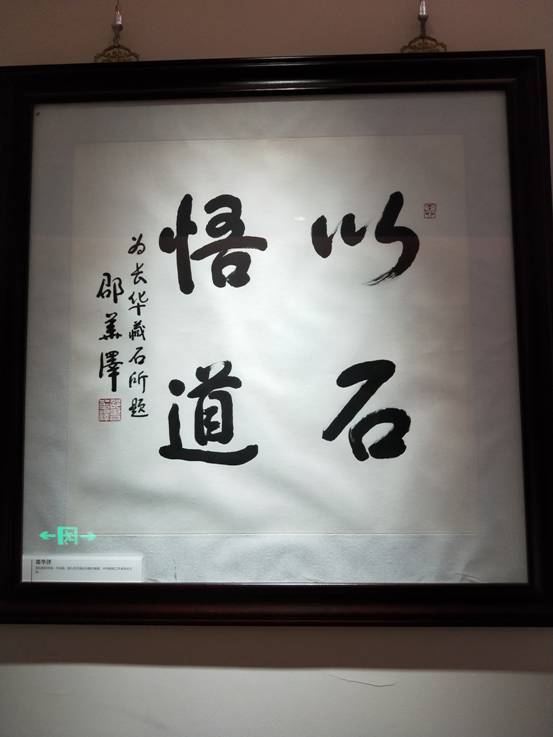 以石
悟道
为长华藏石所题
邵華澤
邵华泽